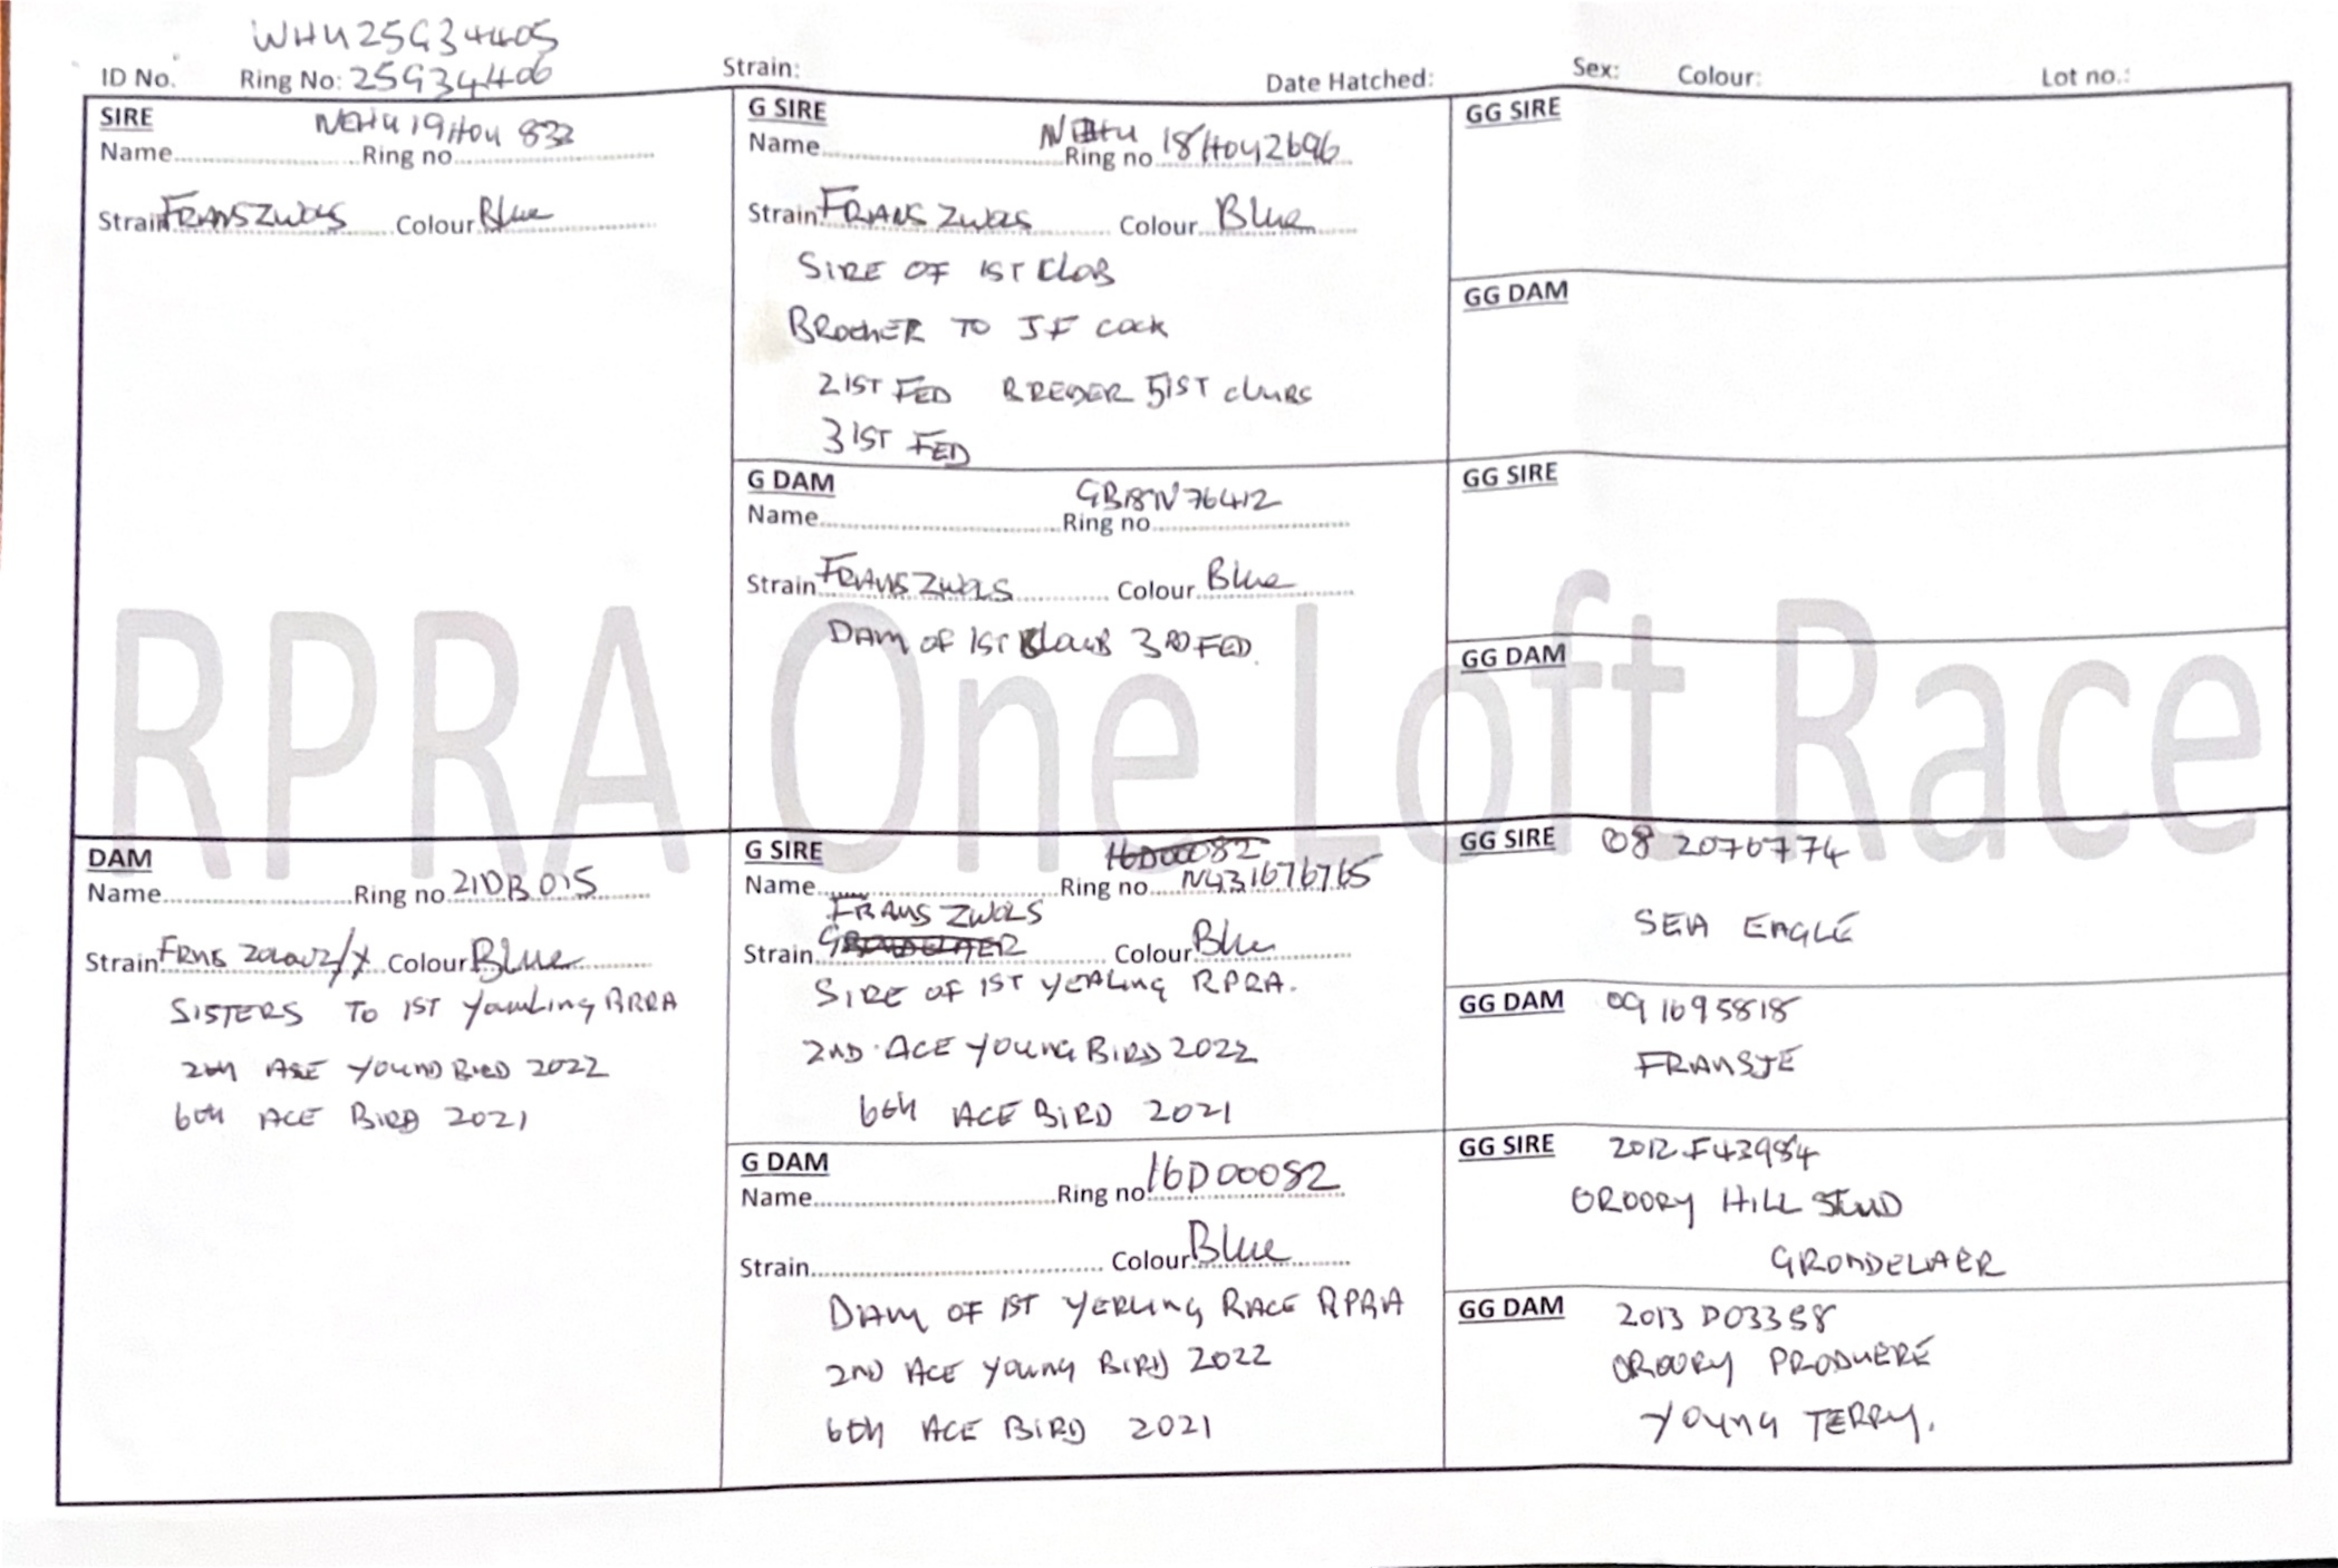 WHU25G34405
ID No. Ring No: 25G34406 Strain: Date Hatched: Sex: Colour: Lot no.:
SIRE
NEHU19HOU 833
Name Ring no
Strain FRANS ZWOLS Colour Blue
G SIRE
Name Ring no 18HOU2696
Strain FRANS ZWOLS Colour Blue
SIRE OF 1ST CLUB
BROTHER TO JF COCK
21ST FED BREEDER 51ST CLUBS
31ST FED
G DAM
GB18N76412
Name Ring no
Strain FRANS ZWOLS Colour Blue
DAM OF 1ST CLUB 3RD FED.
GG SIRE
GG DAM
GG SIRE
GG DAM
RPRA One Loft Race
DAM
Name Ring no 21DB015
Strain Colour Blue
SISTERS TO 1ST
ACE BIRD 2022
6TH ACE BIRD 2021
G SIRE
16D00082
Name Ring no N431676765
FRANS ZWOLS
Strain Colour Blue
SIRE OF 1ST YEALING RPRA.
2ND ACE YOUNG BIRD 2022
6TH ACE BIRD 2021
G DAM
Name Ring no 16D00082
Strain Colour Blue
DAM OF 1ST YERLING RACE RPRA
2ND ACE YOUNG BIRD 2022
6TH ACE BIRD 2021
GG SIRE 08 2076774
SEA EAGLE
GG DAM 09 1695818
FRANSJE
GG SIRE 2012 F43984
HILL STUD
GRONDELAER
GG DAM 2013 D03358
YOUNG TERRY.